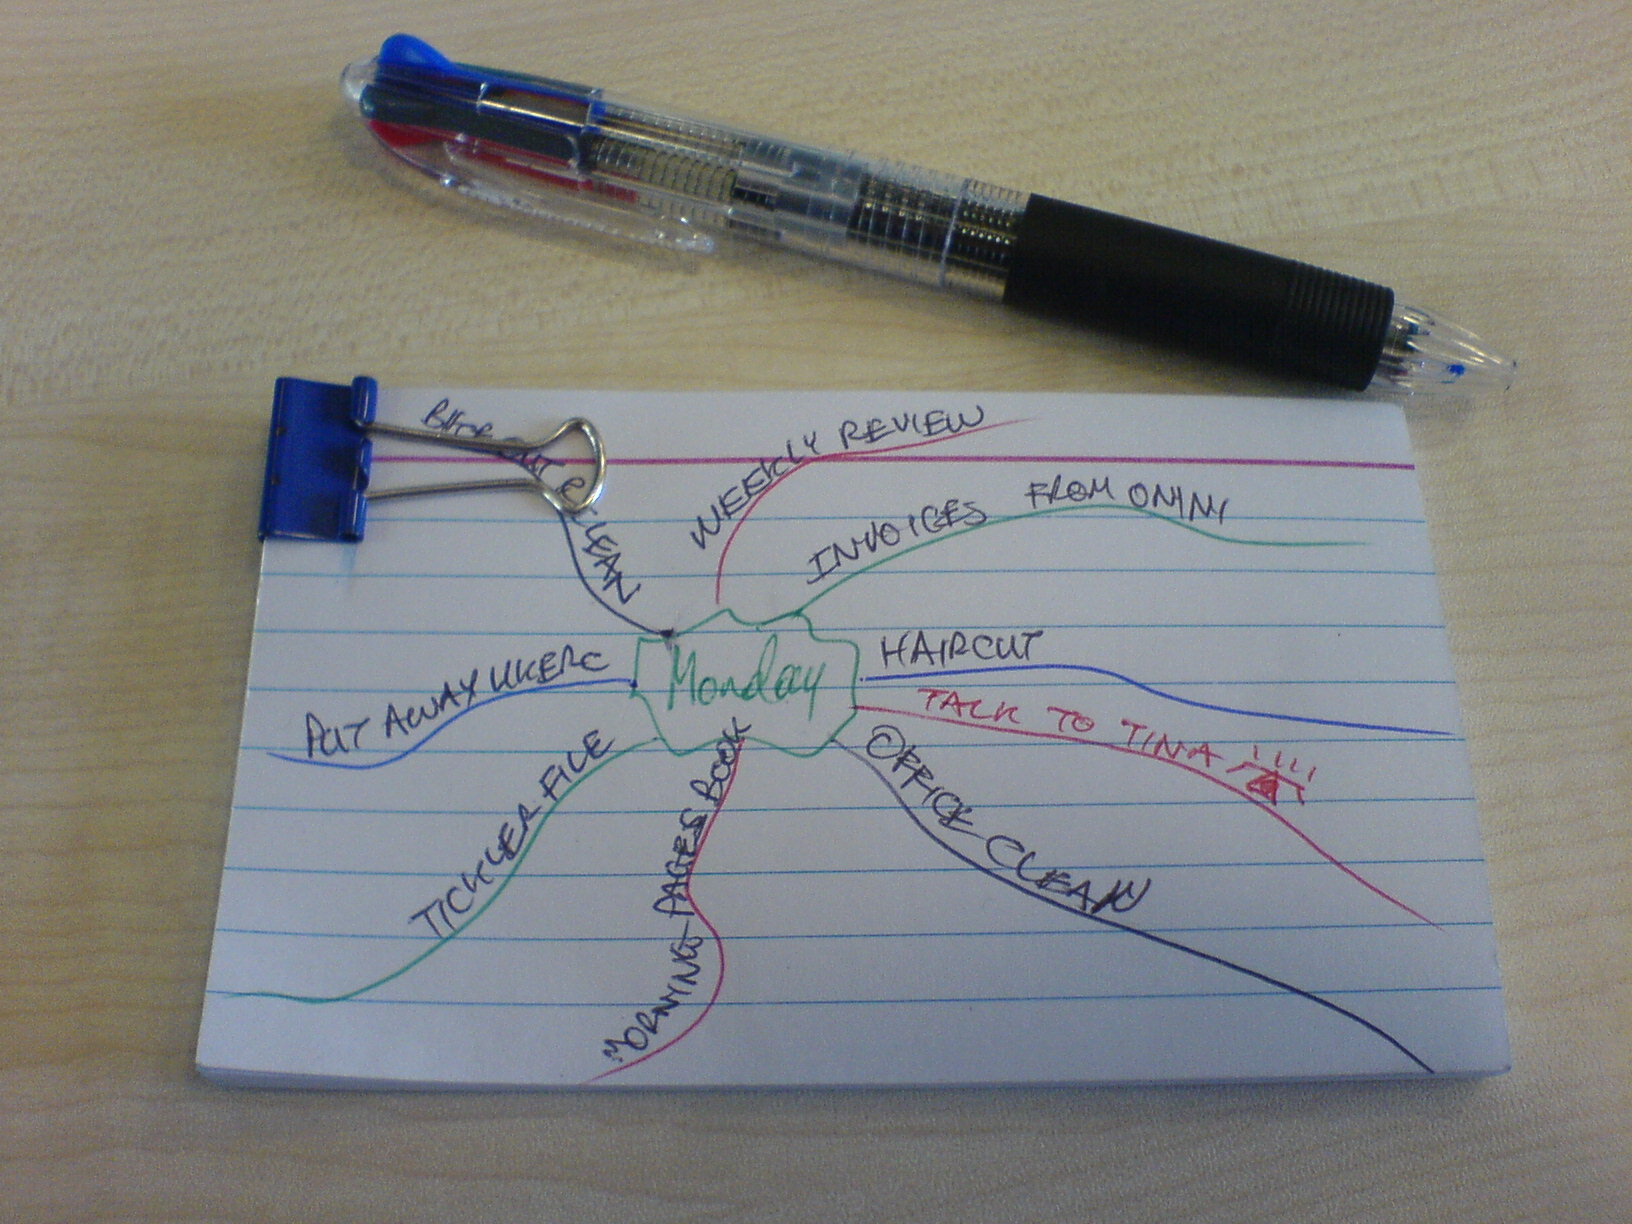 WEEKLY REVIEW
INVOICES FROM OMNI
HAIRCUT
TALK TO TINA !!!!
OFFICE CLEAN
MORNING PAGES BOOK
TICKLER FILE
PUT AWAY UKERC
CLEAN
Monday